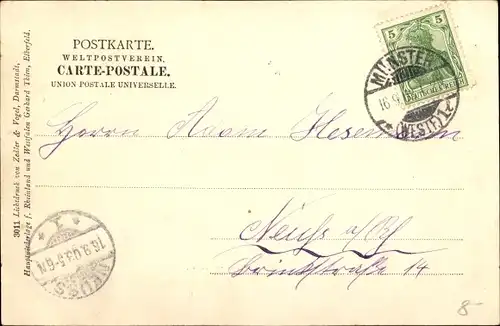 POSTKARTE.
WELTPOSTVEREIN.
CARTE-POSTALE.
UNION POSTALE UNIVERSELLE.
5 5
MÜNSTER
16.9.
(WESTF.) 1
Herrn Adam Hesemann
Neuß a/Rh
Brückstraße 14
NEUSS
16.9.03.5-6N
3011 Lichtdruck von Zedler & Vogel, Darmstadt,
Hauptniederlage f. Rheinland und Westfalen Gerhard Thien, Elberfeld.
8-